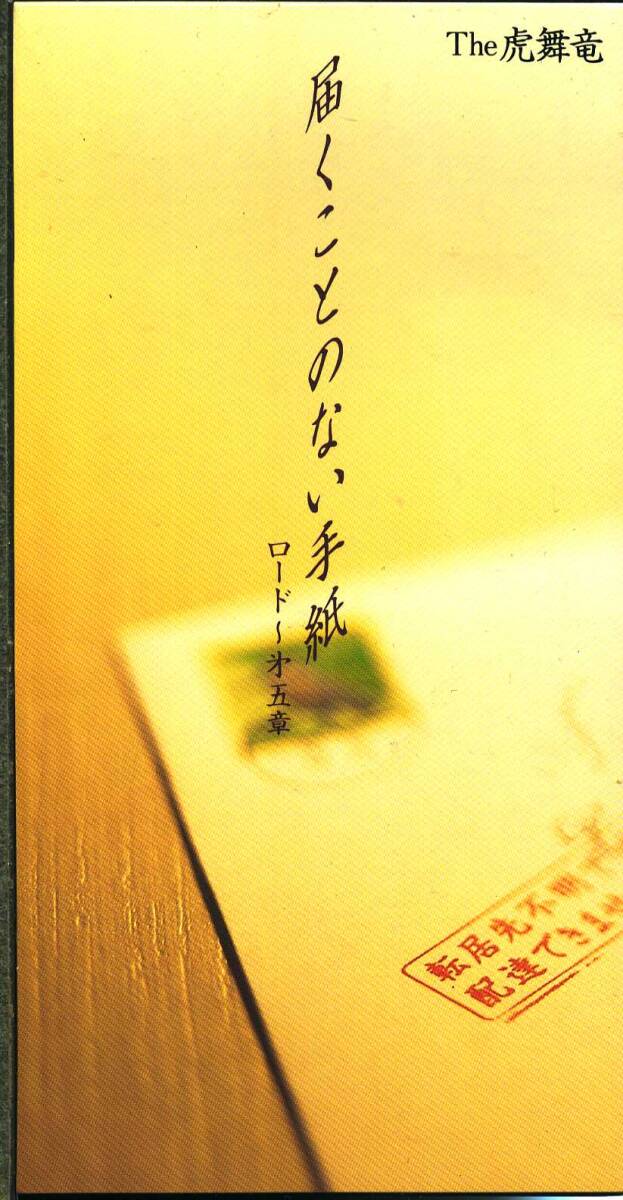 The虎舞竜
届くことのない手紙
ロード〜第五章
転居先不明で
配達できませ